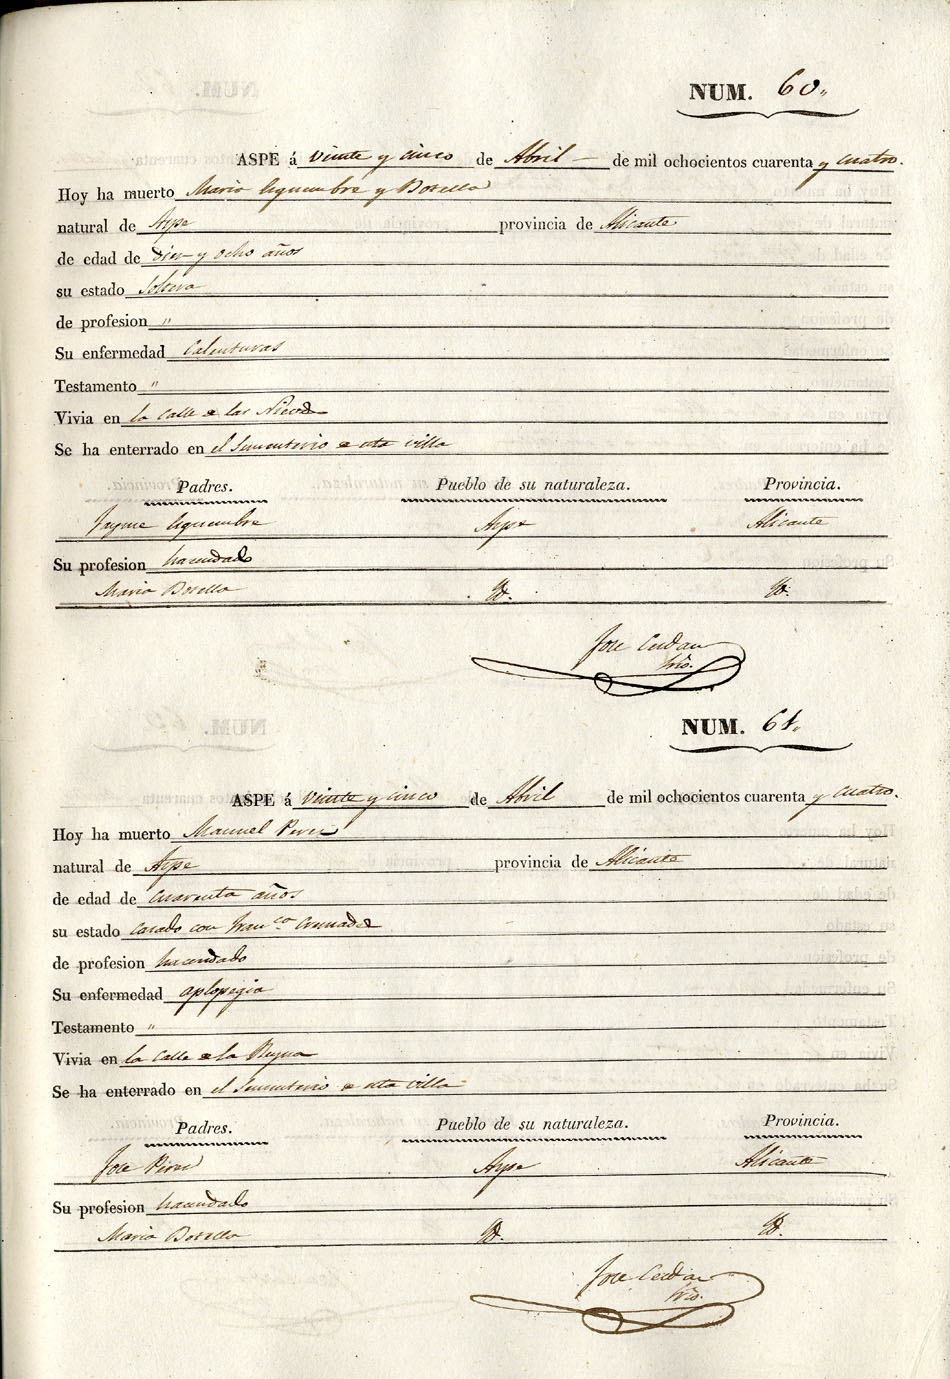 NUM. 60.
ASPE á veinte y cinco de Abril de mil ochocientos cuarenta y cuatro.
Hoy ha muerto Maria Aquembre y Botella
natural de Aspe provincia de Alicante
de edad de diez y ocho años
su estado Soltera
de profesion "
Su enfermedad Calenturas
Testamento "
Vivia en la Calle de las Nieves
Se ha enterrado en el Sementerio de esta villa
Padres. Pueblo de su naturaleza. Provincia.
Jayme Aquembre Aspe Alicante
Su profesion hacendado
Maria Botella Yd. Yd.
Jose Cerdan
Srio.
NUM. 61.
ASPE á veinte y cinco de Abril de mil ochocientos cuarenta y cuatro.
Hoy ha muerto Manuel Perez
natural de Aspe provincia de Alicante
de edad de cuarenta años
su estado casado con Franca
de profesion hacendado
Su enfermedad aplopegia
Testamento "
Vivia en la Calle de la Reyna
Se ha enterrado en el Sementerio de esta villa
Padres. Pueblo de su naturaleza. Provincia.
Jose Perez Aspe Alicante
Su profesion hacendado
Maria Botella Yd. Yd.
Jose Cerdan
Srio.